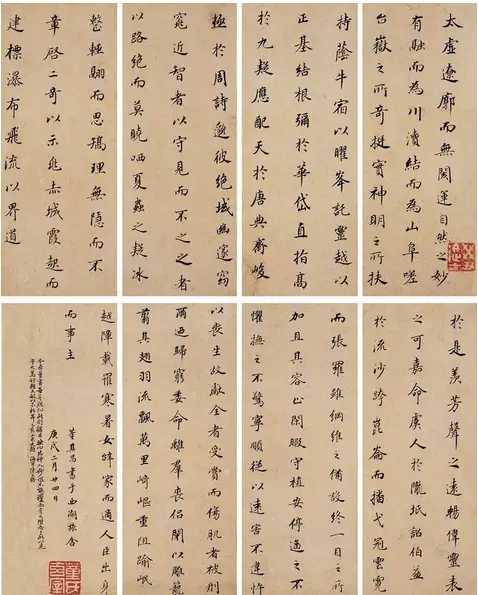 太虛遼廓而無閡運自然之妙
有融而為川瀆結而為山阜嗟
台嶽之所奇挺實神明之所扶
持蔭牛宿以曜峯託靈越以
正基結根彌於華岱直指高
於九疑應配天於唐典齊峻
極於周詩邈彼絕域幽邃窈
窕近智者以守見而不之之者
以路絕而莫曉哂夏蟲之疑冰
整輕翮而思矯理無隱而不
章啓二奇以示兆赤城霞起而
建標瀑布飛流以界道
於是羨芳聲之遠暢偉靈表
之可嘉命虞人於隴坻詔伯益
於流沙跨崑崙而播弋冠雲霓
而張羅雖綱維之備設終一目之所
加且其容止閑暇守植安停逼之不
懼撫之不驚寧順從以遠害不違忤
以喪生故獻全者受賞而傷肌者被刑
爾迺歸窮委命離群喪侶閉以雕籠
翦其翅羽流飄萬里崎嶇重阻踰岷
越障載罹寒暑女辭家而適人臣出身
而事主
董其昌書于西湖旅舍
庚戌二月廿四日